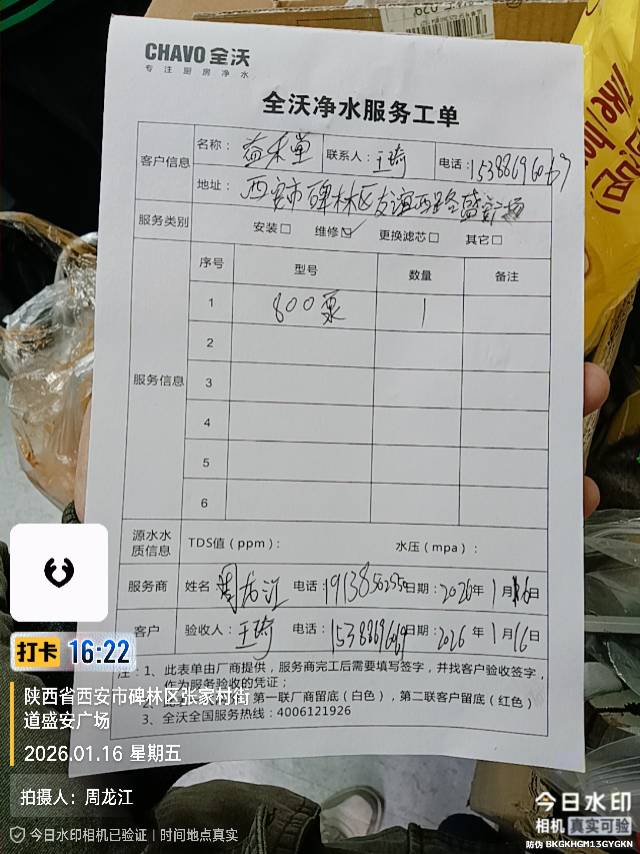 CHAVO 全沃
专注厨房净水
全沃净水服务工单
客户信息 名称: 益禾堂 联系人: 王琦 电话: 15388696067
地址: 西安市碑林区友谊西路盛安广场
服务类别 安装□ 维修☑ 更换滤芯□ 其它□
服务信息 序号 型号 数量 备注
1 800泵 1
2
3
4
5
6
源水水质信息 TDS值(ppm): 水压(mpa):
服务商 姓名 周龙江 电话: 日期: 2026年1月16日
客户 验收人: 王琦 电话: 日期: 2026年1月16日
注: 1、此表单由厂商提供,服务商完工后需要填写签字,并找客户验收签字,
作为服务验收的凭证;
第一联厂商留底(白色),第二联客户留底(红色)
3、全沃全国服务热线: 4006121926
打卡 16:22
陕西省西安市碑林区张家村街
道盛安广场
2026.01.16 星期五
拍摄人: 周龙江
今日水印相机已验证 | 时间地点真实
今日水印
相机 真实可验
防伪 BKGKHGM13GYGKN